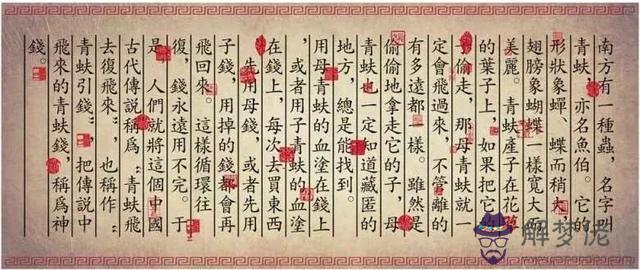 南方有一種蟲，名字叫
青蚨，亦名魚伯。它的
形狀象蟬、蝶而稍大，
翅膀象蝴蝶一樣寬大而
美麗。青蚨產子在花
的葉子上，如果把它的
子偷走，那母青蚨就一
定會飛過來，不管離的
有多遠都一樣。雖然是
偷偷地拿走它的子，母
青蚨也一定知道藏匿的
地方，總是能找到。
用母青蚨的血塗在錢上
，或者用子青蚨的血塗
在錢上，每次去買東西
先用母錢，或者先用
子錢，用掉的錢都會再
飛回來。這樣循環往
復，錢永遠用不完。于
是，人們就將這個中國
古代傳說稱爲“青蚨飛
去復飛來”，也稱作“
青蚨引錢”，把傳說中
飛來的青蚨錢，稱爲神
錢。
解梦佬